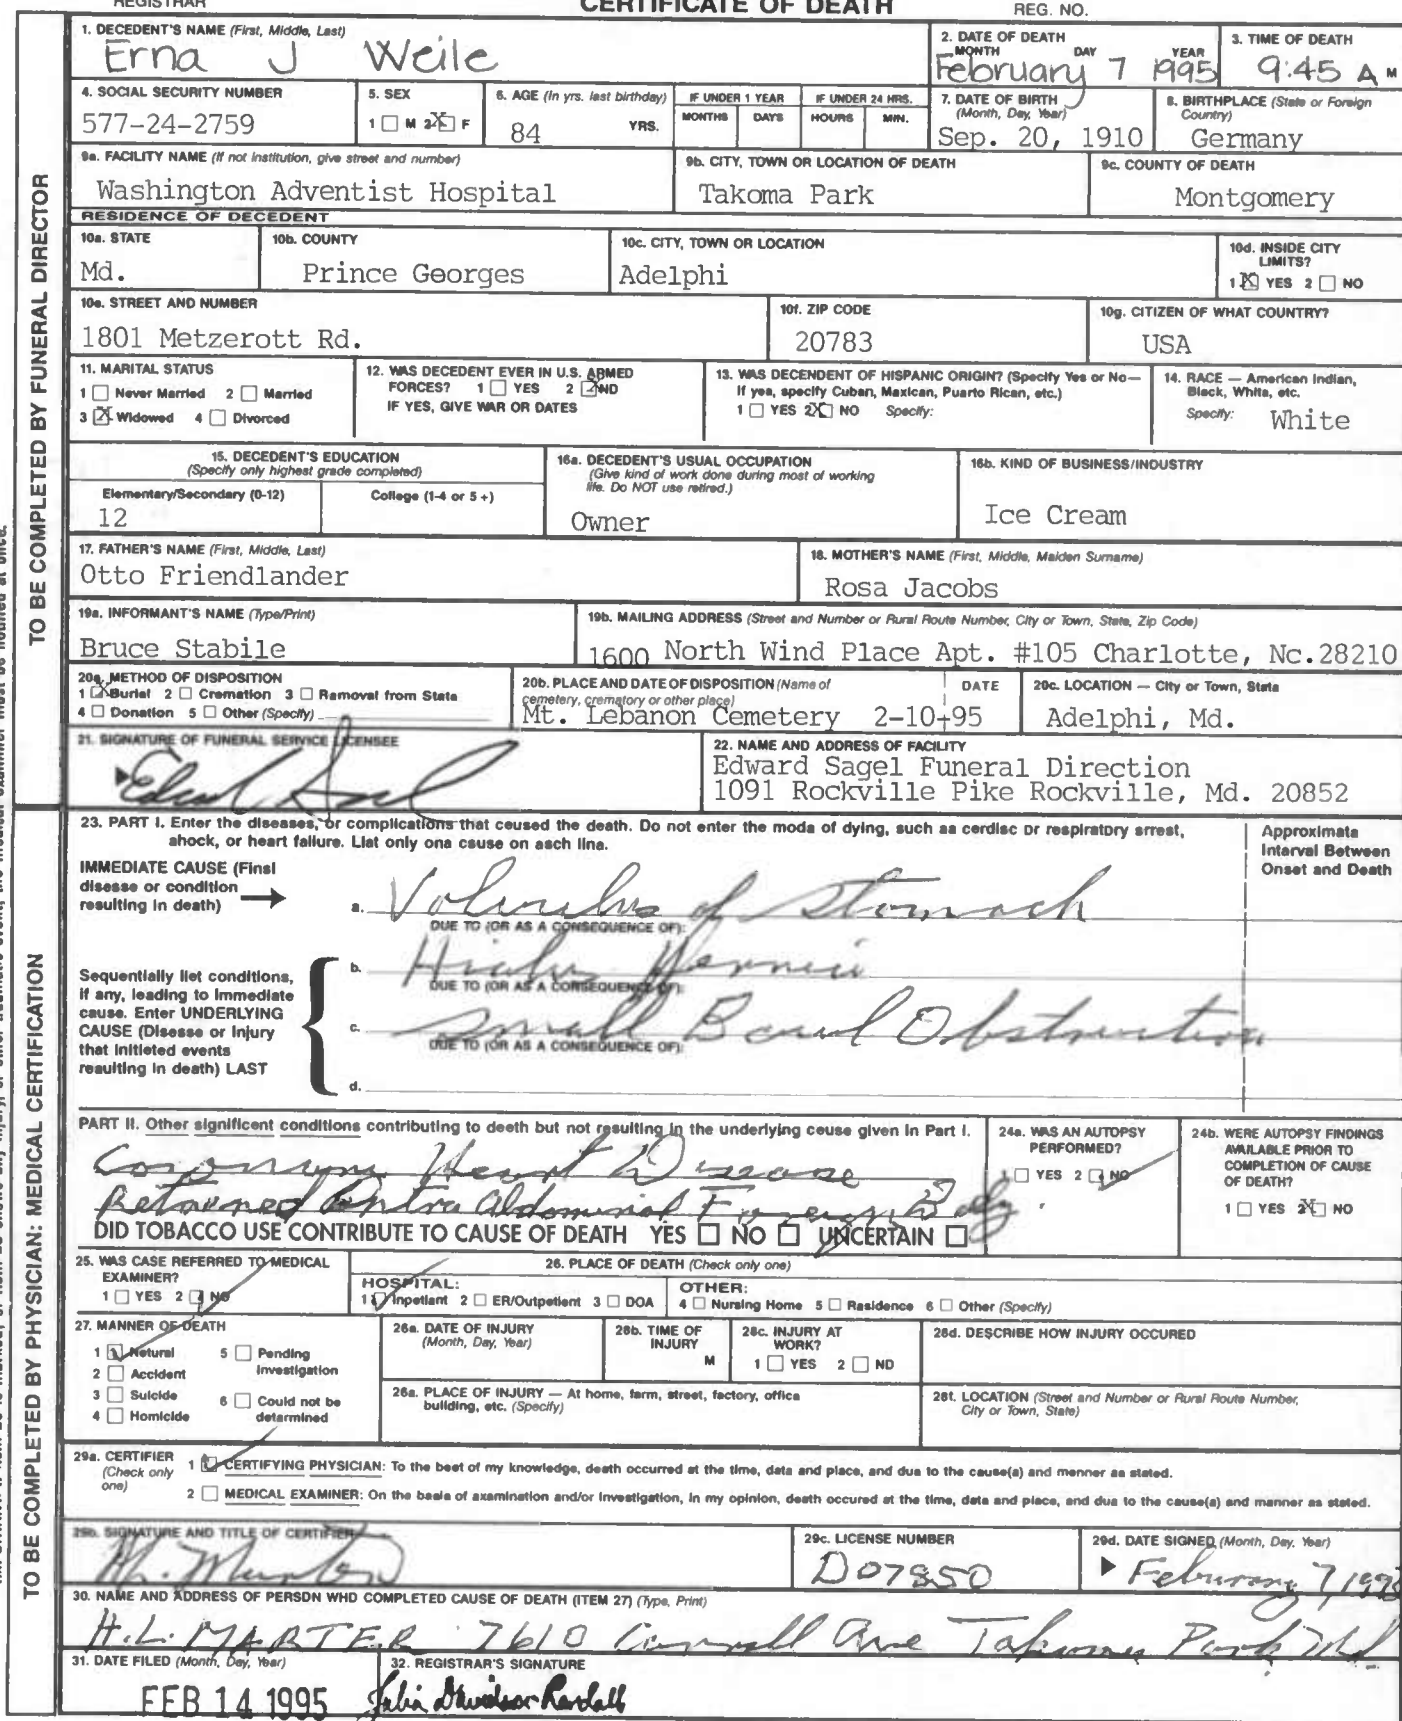 REGISTRAR
CERTIFICATE OF DEATH
REG. NO.
1. DECEDENT'S NAME (First, Middle, Last)
Erna J Weile
2. DATE OF DEATH
MONTH DAY YEAR
February 7 1995
3. TIME OF DEATH
9:45 A M
4. SOCIAL SECURITY NUMBER
577-24-2759
5. SEX
1 ☐ M 2 ☒ F
6. AGE (In yrs. last birthday)
84 YRS.
IF UNDER 1 YEAR
MONTHS DAYS
IF UNDER 24 HRS.
HOURS MIN.
7. DATE OF BIRTH
(Month, Day, Year)
Sep. 20, 1910
8. BIRTHPLACE (State or Foreign
Country)
Germany
9a. FACILITY NAME (If not institution, give street and number)
Washington Adventist Hospital
9b. CITY, TOWN OR LOCATION OF DEATH
Takoma Park
9c. COUNTY OF DEATH
Montgomery
RESIDENCE OF DECEDENT
10a. STATE
Md.
10b. COUNTY
Prince Georges
10c. CITY, TOWN OR LOCATION
Adelphi
10d. INSIDE CITY
LIMITS?
1 ☒ YES 2 ☐ NO
10e. STREET AND NUMBER
1801 Metzerott Rd.
10f. ZIP CODE
20783
10g. CITIZEN OF WHAT COUNTRY?
USA
11. MARITAL STATUS
1 ☐ Never Married 2 ☐ Married
3 ☒ Widowed 4 ☐ Divorced
12. WAS DECEDENT EVER IN U.S. ARMED
FORCES? 1 ☐ YES 2 ☒ NO
IF YES, GIVE WAR OR DATES
13. WAS DECENDENT OF HISPANIC ORIGIN? (Specify Yes or No—
If yes, specify Cuban, Maxican, Puarto Rican, etc.)
1 ☐ YES 2 ☒ NO Specify:
14. RACE — American Indian,
Black, White, etc.
Specify: White
15. DECEDENT'S EDUCATION
(Specify only highest grade completed)
Elementary/Secondary (0-12)
12
College (1-4 or 5 +)
16a. DECEDENT'S USUAL OCCUPATION
(Give kind of work done during most of working
life. Do NOT use retired.)
Owner
16b. KIND OF BUSINESS/INDUSTRY
Ice Cream
17. FATHER'S NAME (First, Middle, Last)
Otto Friendlander
18. MOTHER'S NAME (First, Middle, Maiden Surname)
Rosa Jacobs
19a. INFORMANT'S NAME (Type/Print)
Bruce Stabile
19b. MAILING ADDRESS (Street and Number or Rural Route Number, City or Town, State, Zip Code)
1600 North Wind Place Apt. #105 Charlotte, Nc.28210
20a. METHOD OF DISPOSITION
1 ☒ Burial 2 ☐ Cremation 3 ☐ Removal from State
4 ☐ Donation 5 ☐ Other (Specify)
20b. PLACE AND DATE OF DISPOSITION (Name of
cemetery, crematory or other place)
DATE
Mt. Lebanon Cemetery 2-10-95
20c. LOCATION — City or Town, State
Adelphi, Md.
21. SIGNATURE OF FUNERAL SERVICE LICENSEE
22. NAME AND ADDRESS OF FACILITY
Edward Sagel Funeral Direction
1091 Rockville Pike Rockville, Md. 20852
TO BE COMPLETED BY FUNERAL DIRECTOR
23. PART I. Enter the diseases, or complications that caused the death. Do not enter the mode of dying, such as cardiac or respiratory arrest,
shock, or heart failure. List only one cause on each line.
Approximate
Interval Between
Onset and Death
IMMEDIATE CAUSE (Final
disease or condition
resulting in death)
a. Volvulus of Stomach
DUE TO (OR AS A CONSEQUENCE OF):
b. Hiatus Hernia
DUE TO (OR AS A CONSEQUENCE OF):
c. Small Bowel Obstruction
DUE TO (OR AS A CONSEQUENCE OF):
d.
Sequentially list conditions,
if any, leading to immediate
cause. Enter UNDERLYING
CAUSE (Disease or injury
that initiated events
resulting in death) LAST
PART II. Other significant conditions contributing to death but not resulting in the underlying cause given in Part I.
Coronary Heart Disease
Retained Intra Abdominal Foreign Body
DID TOBACCO USE CONTRIBUTE TO CAUSE OF DEATH YES ☐ NO ☐ UNCERTAIN ☐
24a. WAS AN AUTOPSY
PERFORMED?
1 ☐ YES 2 ☑ NO
24b. WERE AUTOPSY FINDINGS
AVAILABLE PRIOR TO
COMPLETION OF CAUSE
OF DEATH?
1 ☐ YES 2 ☒ NO
25. WAS CASE REFERRED TO MEDICAL
EXAMINER?
1 ☐ YES 2 ☑ NO
26. PLACE OF DEATH (Check only one)
HOSPITAL:
1 ☑ Inpatient 2 ☐ ER/Outpatient 3 ☐ DOA
OTHER:
4 ☐ Nursing Home 5 ☐ Residence 6 ☐ Other (Specify)
27. MANNER OF DEATH
1 ☑ Natural 5 ☐ Pending
Investigation
2 ☐ Accident
3 ☐ Suicide 6 ☐ Could not be
determined
4 ☐ Homicide
28a. DATE OF INJURY
(Month, Day, Year)
28b. TIME OF
INJURY
M
28c. INJURY AT
WORK?
1 ☐ YES 2 ☐ NO
28d. DESCRIBE HOW INJURY OCCURED
28e. PLACE OF INJURY — At home, farm, street, factory, office
building, etc. (Specify)
28f. LOCATION (Street and Number or Rural Route Number,
City or Town, State)
29a. CERTIFIER
(Check only
one)
1 ☑ CERTIFYING PHYSICIAN: To the best of my knowledge, death occurred at the time, date and place, and due to the cause(s) and manner as stated.
2 ☐ MEDICAL EXAMINER: On the basis of examination and/or investigation, in my opinion, death occured at the time, date and place, and due to the cause(s) and manner as stated.
29b. SIGNATURE AND TITLE OF CERTIFIER
29c. LICENSE NUMBER
D07850
29d. DATE SIGNED (Month, Day, Year)
February 7, 1995
30. NAME AND ADDRESS OF PERSON WHO COMPLETED CAUSE OF DEATH (ITEM 27) (Type, Print)
H.L. MARTER 7610 Carroll Ave Takoma Park Md
31. DATE FILED (Month, Day, Year)
FEB 14 1995
32. REGISTRAR'S SIGNATURE
Julia Davidson-Randall
TO BE COMPLETED BY PHYSICIAN: MEDICAL CERTIFICATION